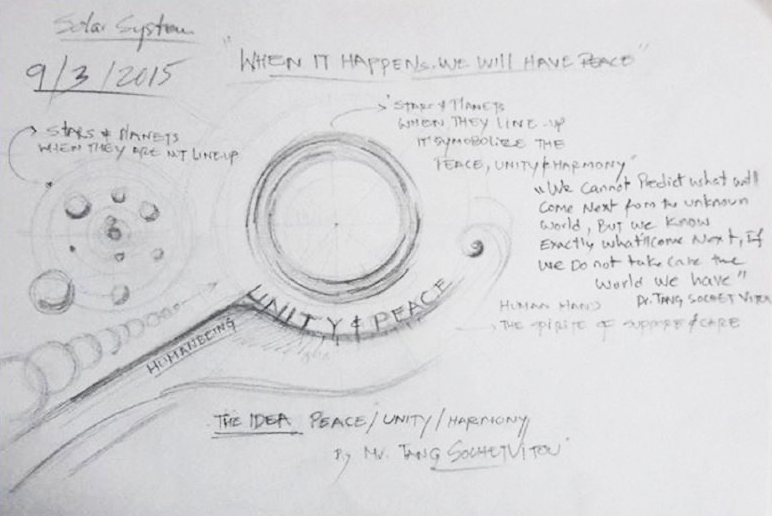 Solar System
9/3/2015
"WHEN IT HAPPENS. WE WILL HAVE PEACE"
STARS & PLANETS
WHEN THEY ARE NT LINE UP
STARS & PLANETS
WHEN THEY LINE-UP
IT SYMOBOLIZE THE
PEACE, UNITY & HARMONY"
"We cannot Predict what will
come Next from the unknown
world, But we know
Exactly what'll come Next, If
we Do not take care the
world we have"
Dr. TANG SOCHET VITOU
HUMAN HAND
THE SPIRITE OF SUPPORT & CARE
UNITY & PEACE
HUMANBEING
THE IDEA PEACE/UNITY/HARMONY
By Mr. TANG SOCHETVITOU